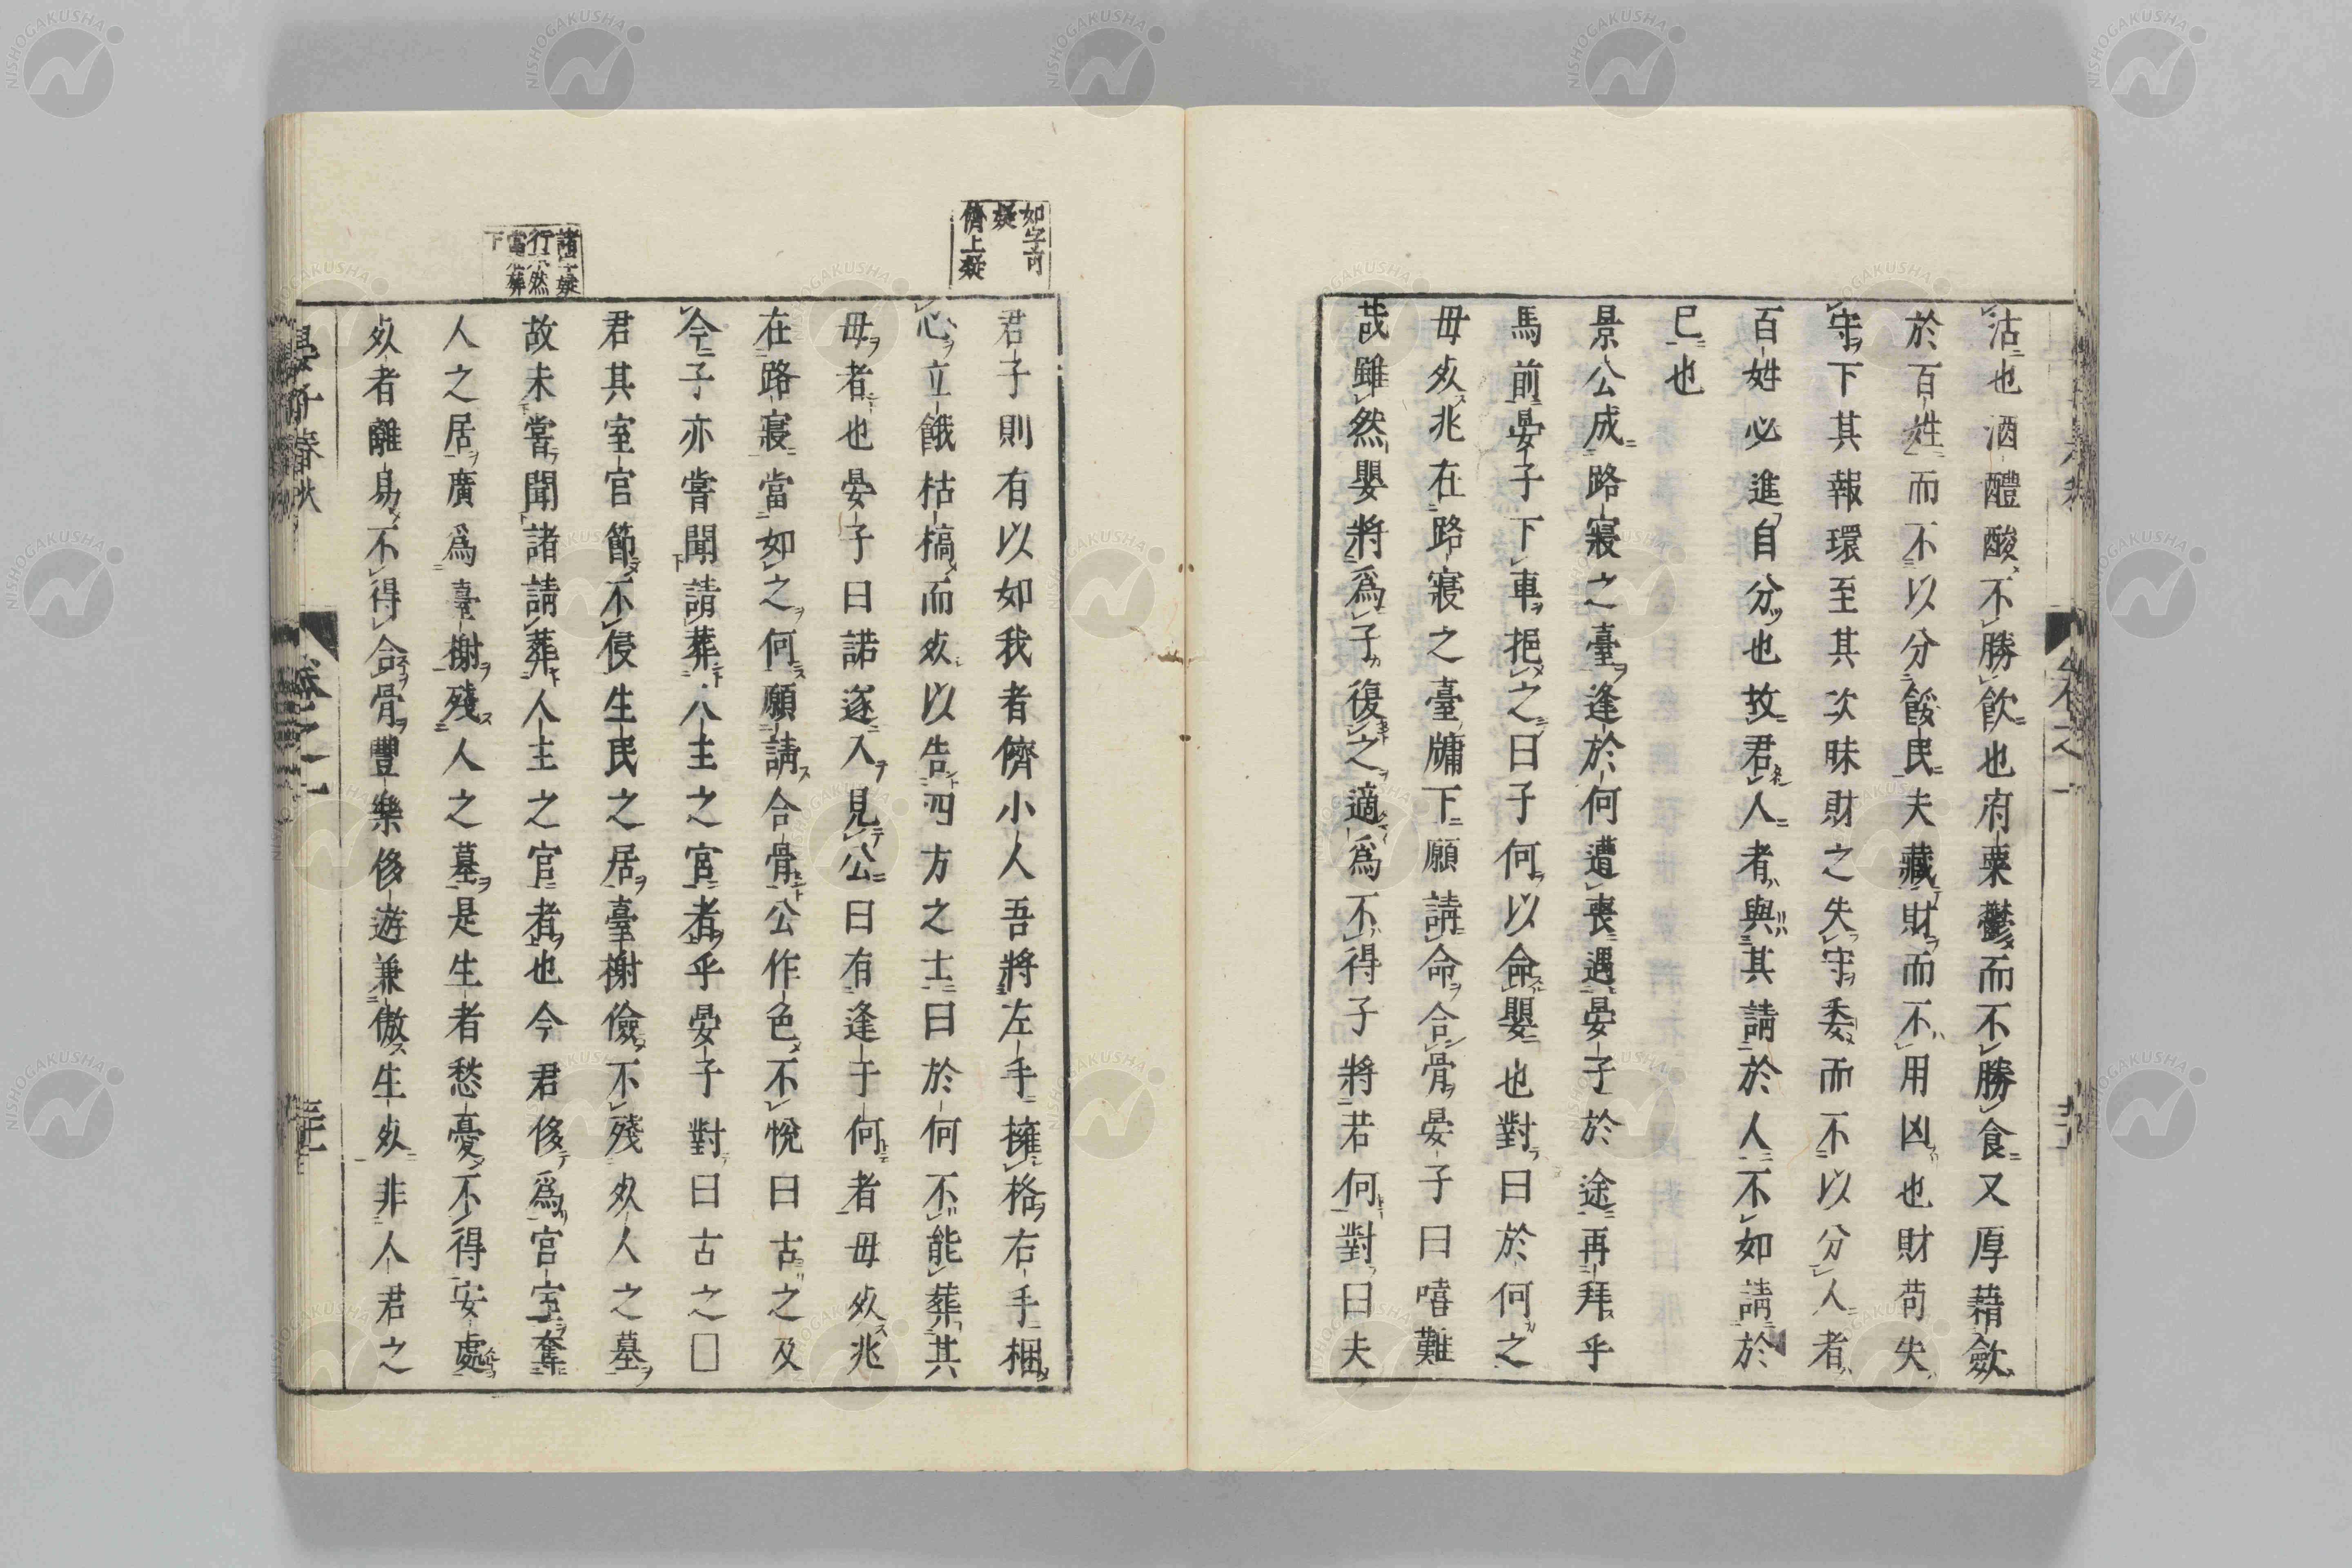 沽也酒醴酸不勝飲也府粟鬱而不勝食又厚藉歛
於百姓而不以分餒民夫藏財而不用凶也財苟失
守下其報環至其次昧財之失守委而不以分人者
百姓必進自分也故君人者與其請於人不如請於
已也
景公成路寢之臺逢於何遭喪遇晏子於途再拜乎
馬前晏子下車挹之曰子何以命嬰也對曰於何之
毋㱙兆在路寢之臺牖下願請命合骨晏子曰嘻難
哉雖然嬰將爲子復之適爲不得子將若何對曰夫
如字可
疑
儕上疑
君子則有以如我者儕小人吾將左手擁格右手梱
心立餓枯槁而㱙以告四方之士曰於何不能葬其
毋者也晏子曰諾遂入見公曰有逢于何者毋㱙兆
在路寢當如之何願請合骨公作色不悅曰古之及
今子亦嘗聞請葬人主之宮者乎晏子對曰古之□
君其室官節不侵生民之居臺榭儉不殘㱙人之墓
故未嘗聞諸請葬人主之官者也今君侈爲宮室奪
人之居廣爲臺榭殘人之墓是生者愁憂不得安處
㱙者離易不得合骨豐樂侈遊兼傲生㱙非人君之
晏子春秋
卷之一